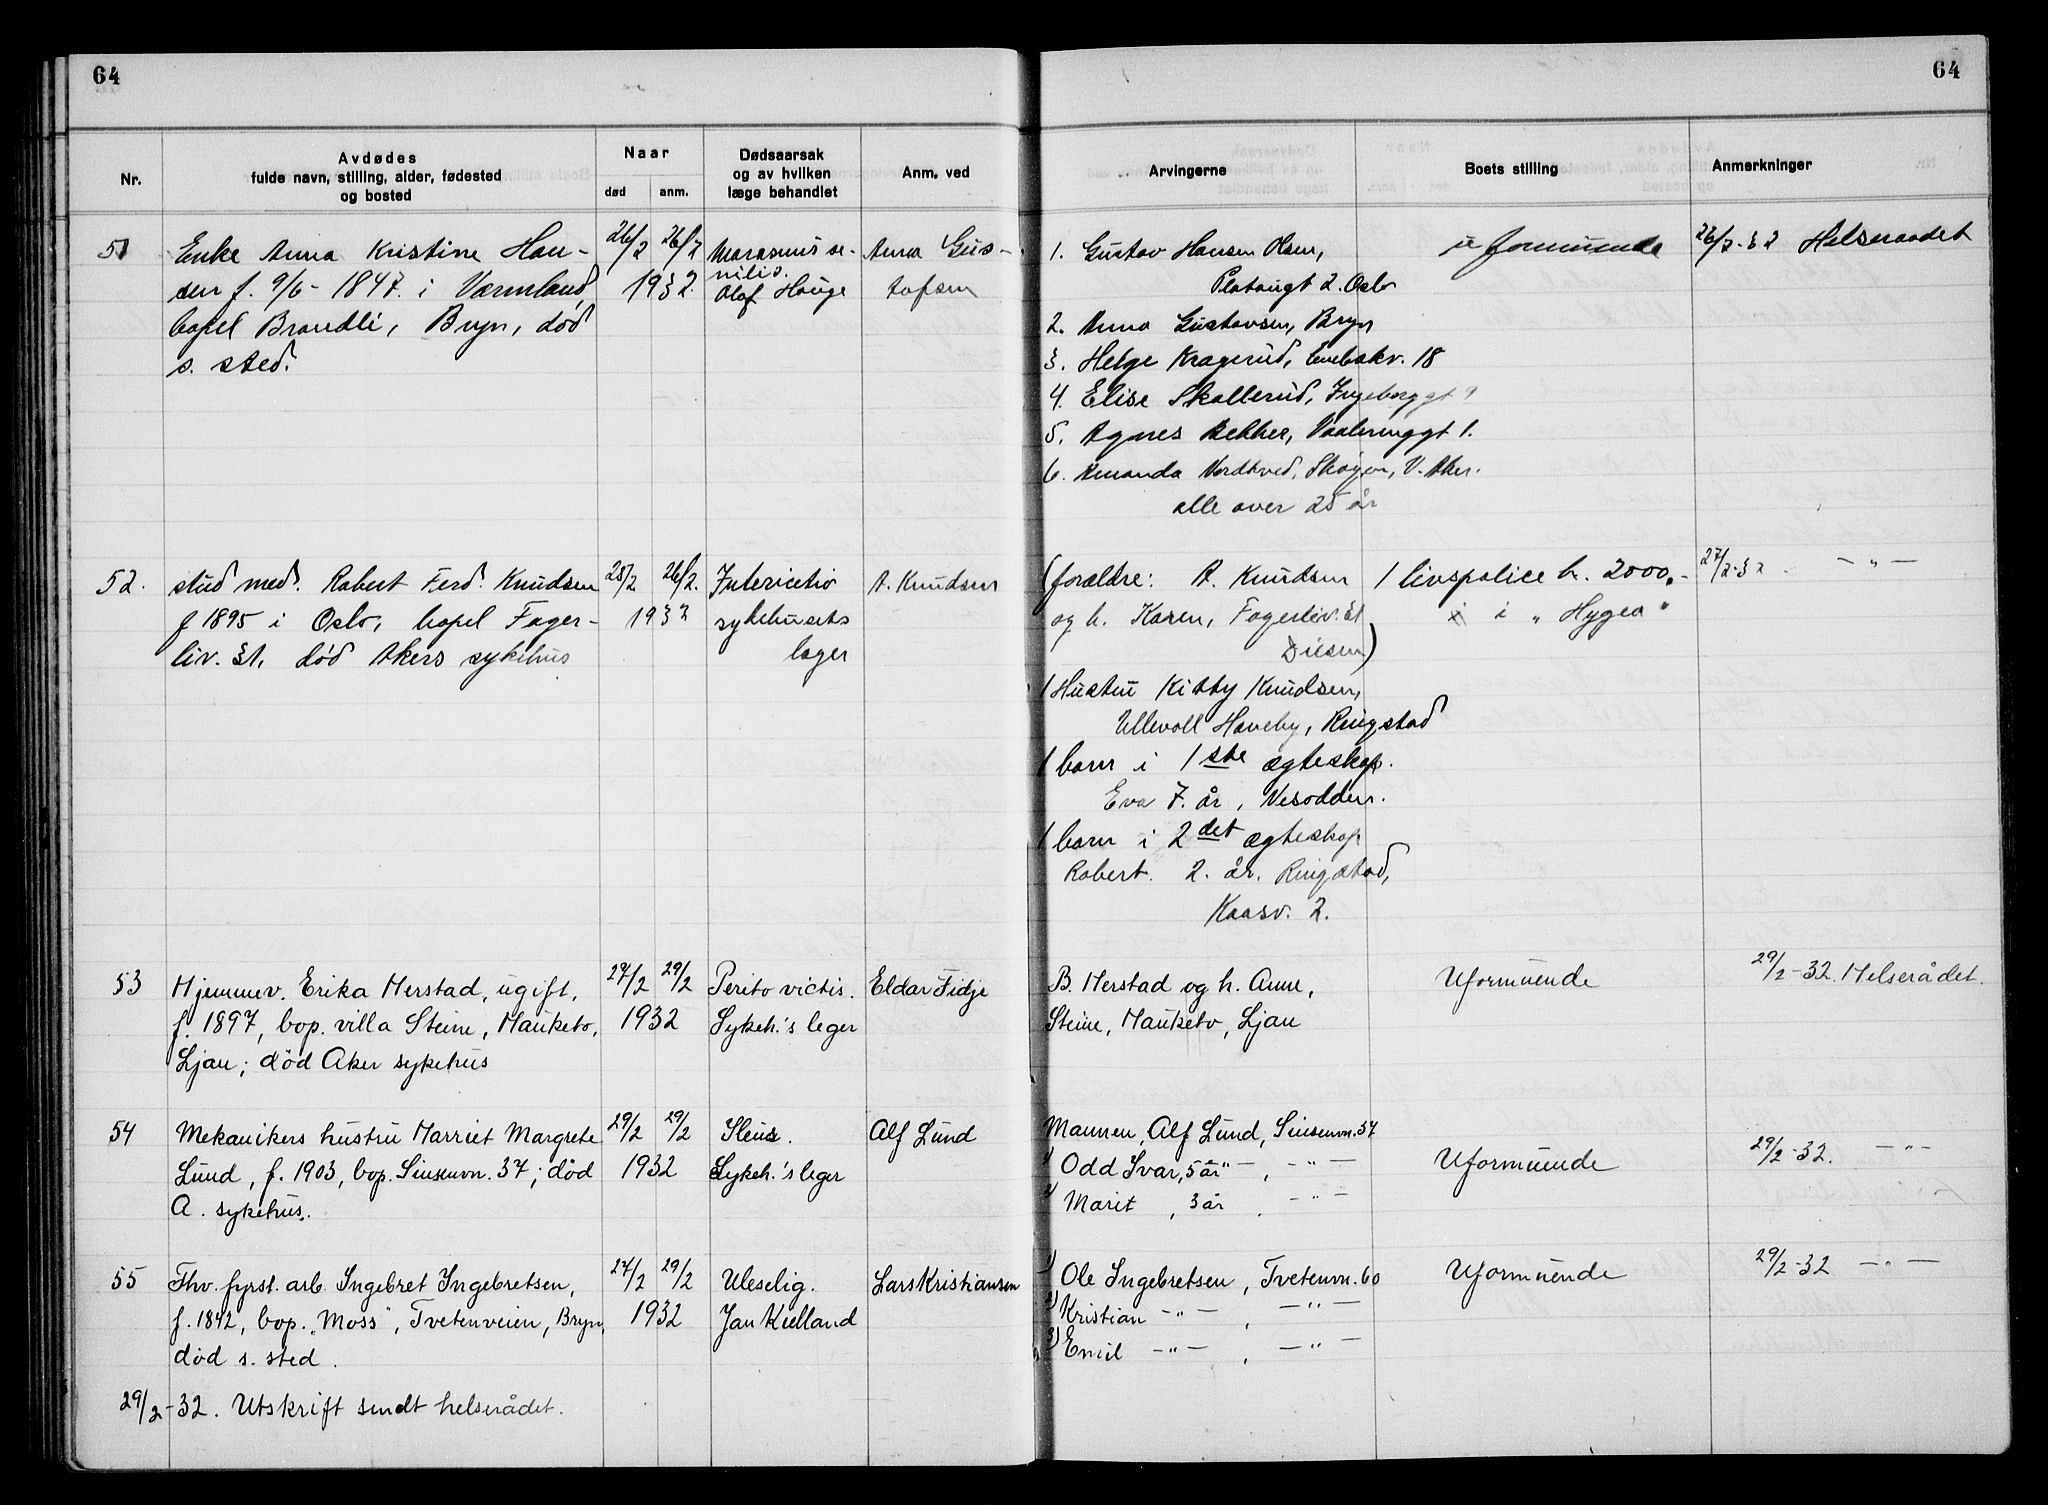 64
64
Nr.
Avdødes
fulde navn, stilling, alder, fødested
og bosted
Naar
død
anm.
Dødsaarsak
og av hvilken
læge behandlet
Anm. ved
Arvingerne
Boets stilling
Anmerkninger
51
Enke Anna Kristine Han-
sen f. 9/6 - 1847. i Værmland,
bopel Brandli, Bryn, død
s. sted.
26/2 26/2
1932.
Marasmus se-
nilis.
Olaf Hauge
Anna Gus-
tafsen
1. Gustav Hansen Olsen,
Platougt 2. Oslo
2. Anna Gustavsen, Bryn
3. Helge Kragerud, Enebakv. 18
4. Elise Skallerud, Ingeborggt 9
5. Agnes Bekker, Vaalerenggt 1.
6. Amanda Nordtved, Skøyen, V. Aker.
alle over 25 år
uformuende
26/2-32 Helseraadet
52.
stud med. Robert Ferd. Knudsen
f 1895 i Oslo, bopel Fager-
liv. 31, død Akers sykehus
25/2 26/2.
1932
Intoxicatio
sykehusets
læger
A. Knudsen
(forældre: A. Knudsen
og h. Karen, Fagerliv. 31
Disen)
1 Hustru Kitty Knudsen,
Ullevoll Haveby, Ringstad
1 barn i 1ste ægteskap.
Eva 7. år, Nesodden.
1 barn i 2det ægteskap
Robert. 2. år. Ringstad,
Kaasv. 2.
1 livspolice kr. 2000,-
i „Hygea"
27/2-32 . — „ —
53
Hjemmev. Erika Herstad, ugift,
f. 1897, bop. villa Steine, Hauketo,
Ljan; død Aker sykehus
27/2 29/2
1932
Perito victis.
Sykeh.'s leger
Eldar Fidje
B. Herstad og h. Anne,
Steine, Hauketo, Ljan
Uformuende
29/2-32. Helserådet.
54
Mekanikers hustru Harriet Margrete
Lund, f. 1903, bop. Sinsenvn. 37; død
A. sykehus.
29/2 29/2
1932
Ileus.
Sykeh.'s leger
Alf Lund
Mannen, Alf Lund, Sinsenvn. 37
1) Odd Ivar, 5 år — , — „ —
2) Marit , 3 år , — „ —
Uformuende
29/2-32. — „ —
55
Fhv. fyrst. arb. Ingebret Ingebretsen,
f. 1842, bop. „Moss", Tvetenveien, Bryn,
død s. sted.
27/2 29/2
1932
Uleselig.
Jan Kielland
Lars Kristiansen
1) Ole Ingebretsen, Tvetenvn. 60
2) Kristian — „ — , — „ —
3) Emil — „ — , — „ —
Uformuende
29/2-32 — „ —
29/2-32. Utskrift sendt helserådet.